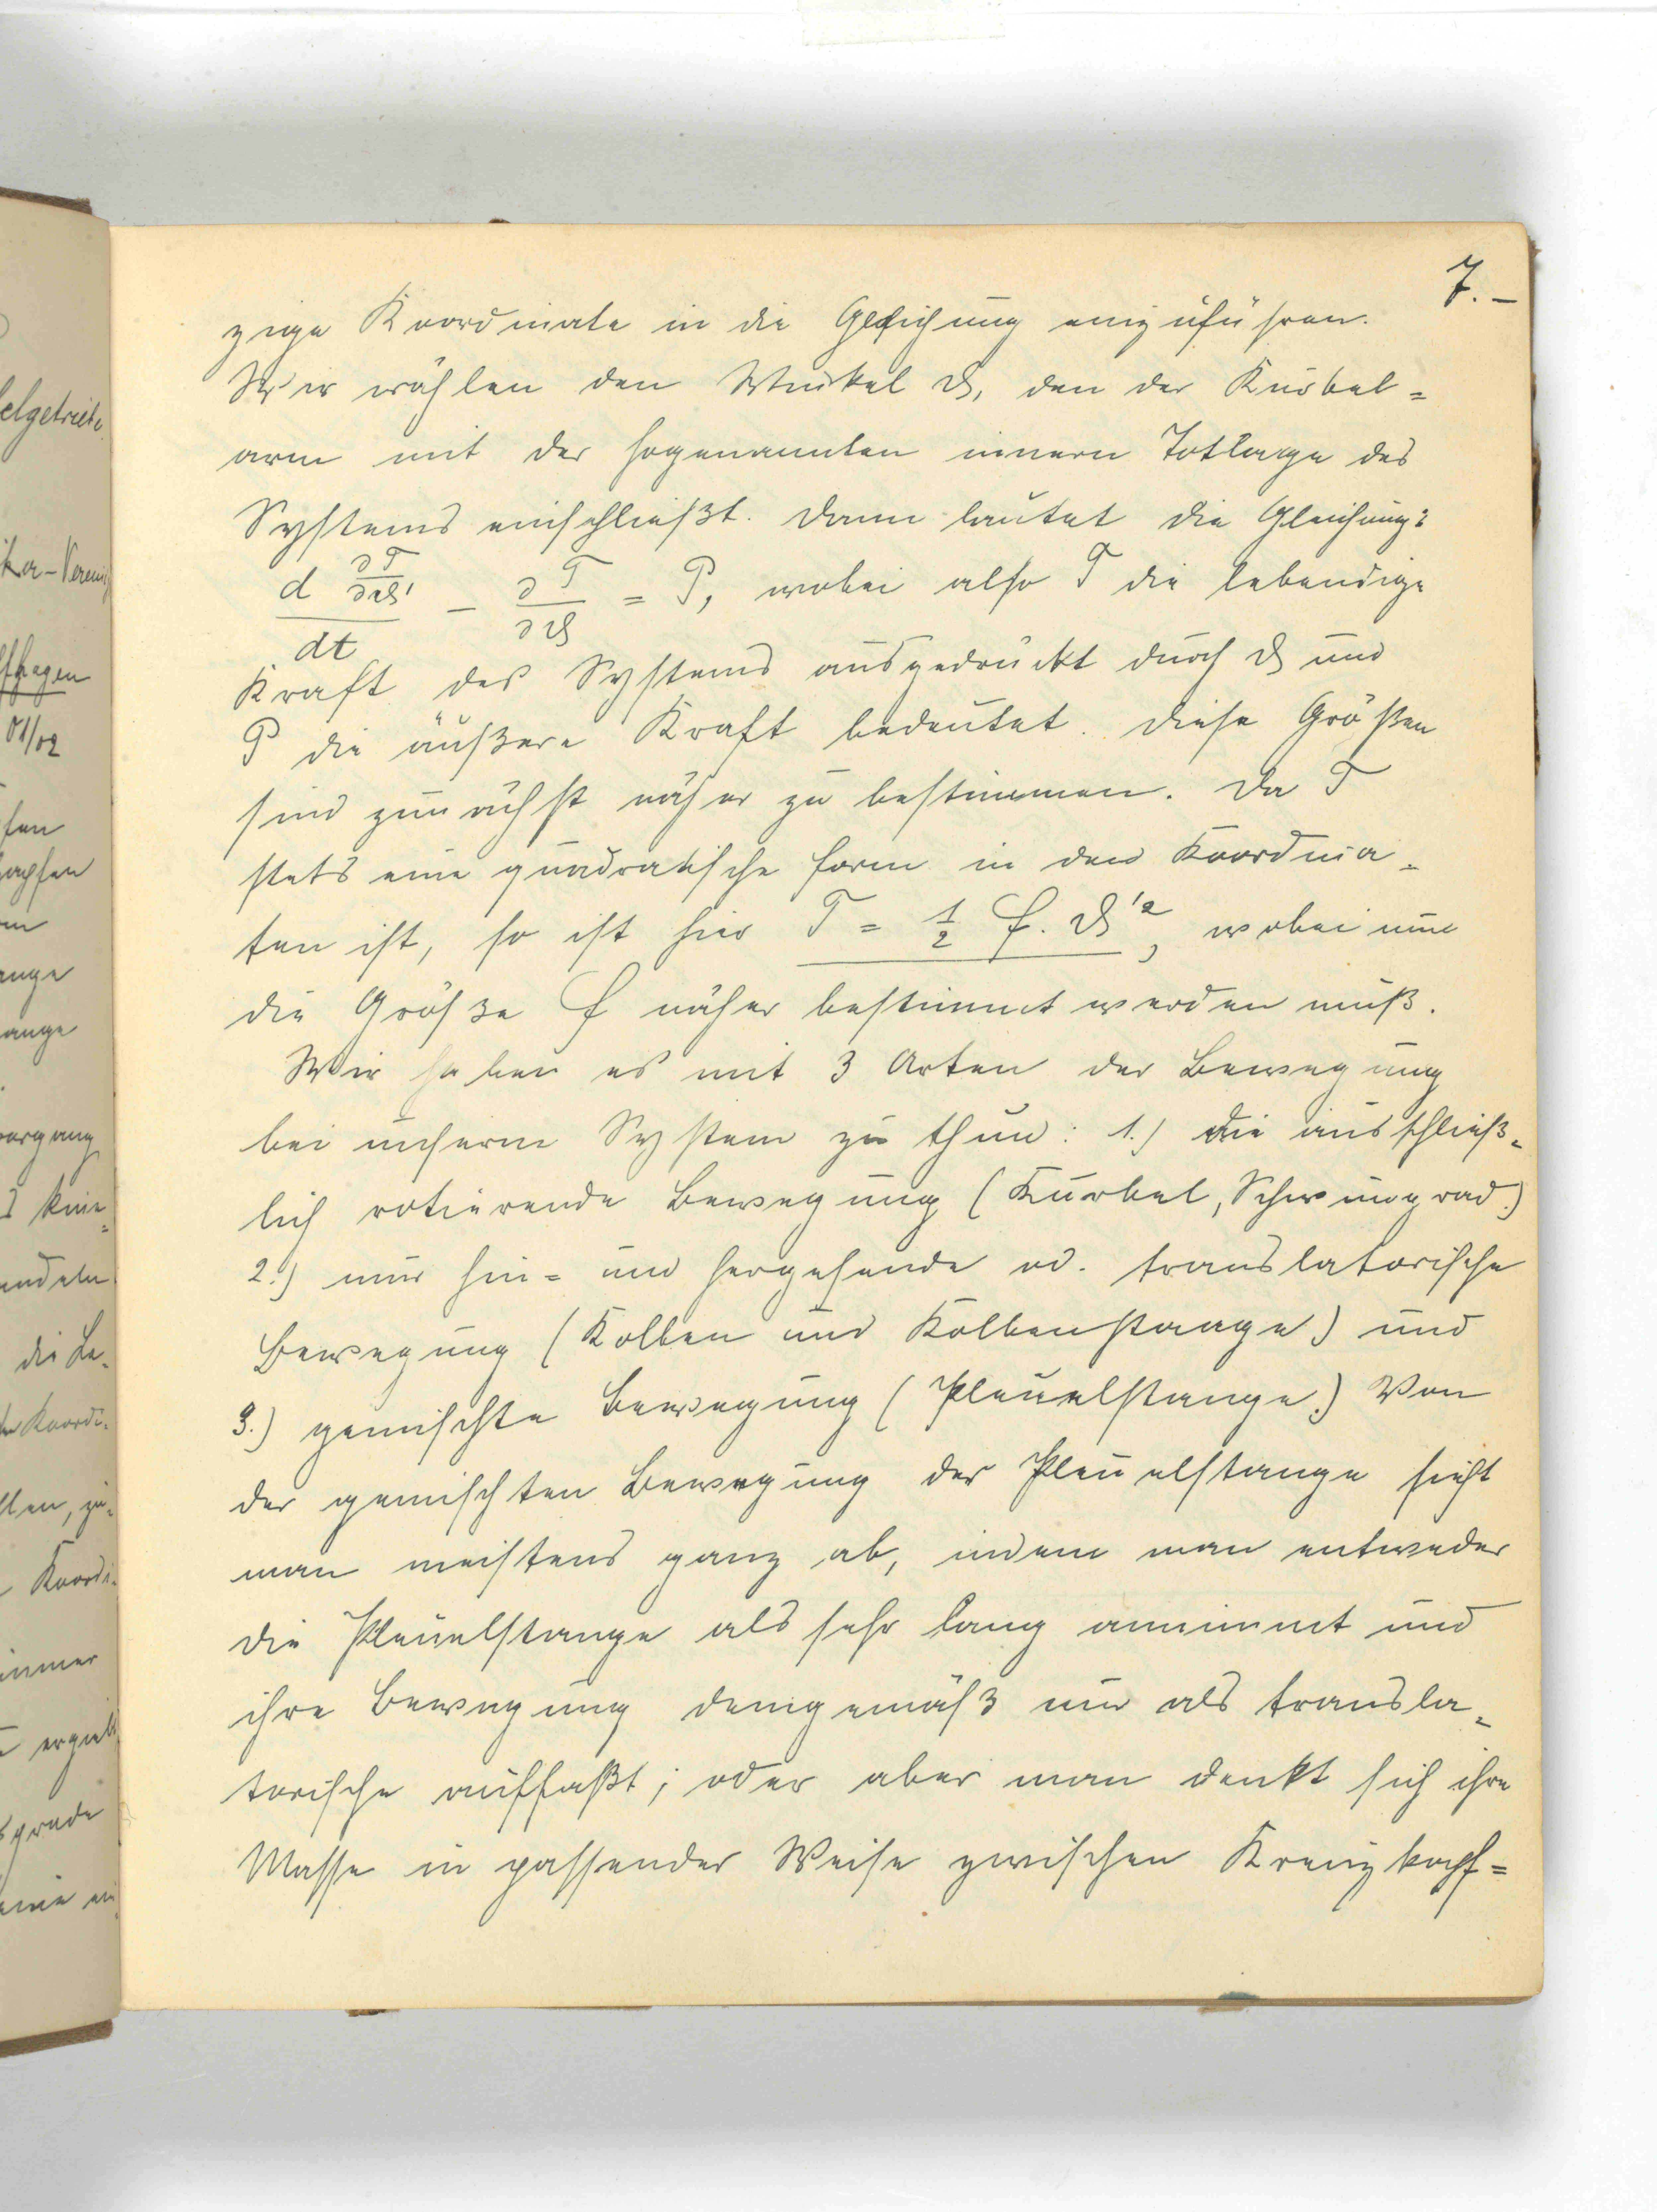 7.–
zige Koordinate in die Gleichung einzuführen.
Wir wählen den Winkel ϑ, den der Kurbel=
arm mit der sogenannten innern Totlage des
Systems einschließt. Dann lautet die Gleichung:
d ∂T/∂ϑ' / dt – ∂T/∂ϑ = P, wobei also T die lebendige
Kraft des Systems ausgedrückt durch ϑ und
P die äußere Kraft bedeutet. Diese Größen
sind zunächst näher zu bestimmen. Da T
stets eine quadratische Form in den Koordina=
ten ist, so ist hier T = 1/2 f. ϑ'², wobei nun
die Größe f näher bestimmt werden muß.
Wir haben es mit 3 Arten der Bewegung
bei unserm System zu thun: 1.) die ausschließ=
lich rotierende Bewegung (Kurbel, Schwungrad.)
2.) nur hin= und hergehende od. translatorische
Bewegung (Kolben und Kolbenstange) und
3.) gemischte Bewegung (Pleuelstange.) Von
der gemischten Bewegung der Pleuelstange sieht
man meistens ganz ab, indem man entweder
die Pleuelstange als sehr lang annimmt und
ihre Bewegung demgemäß nur als transla=
torische auffaßt; oder aber man denkt sich ihre
Masse in passender Weise zwischen Kreuzkopf=
elgetriebe
01/02
die Le=
Koordi=
llen, zu=
Koordi=
immer
ergiebt